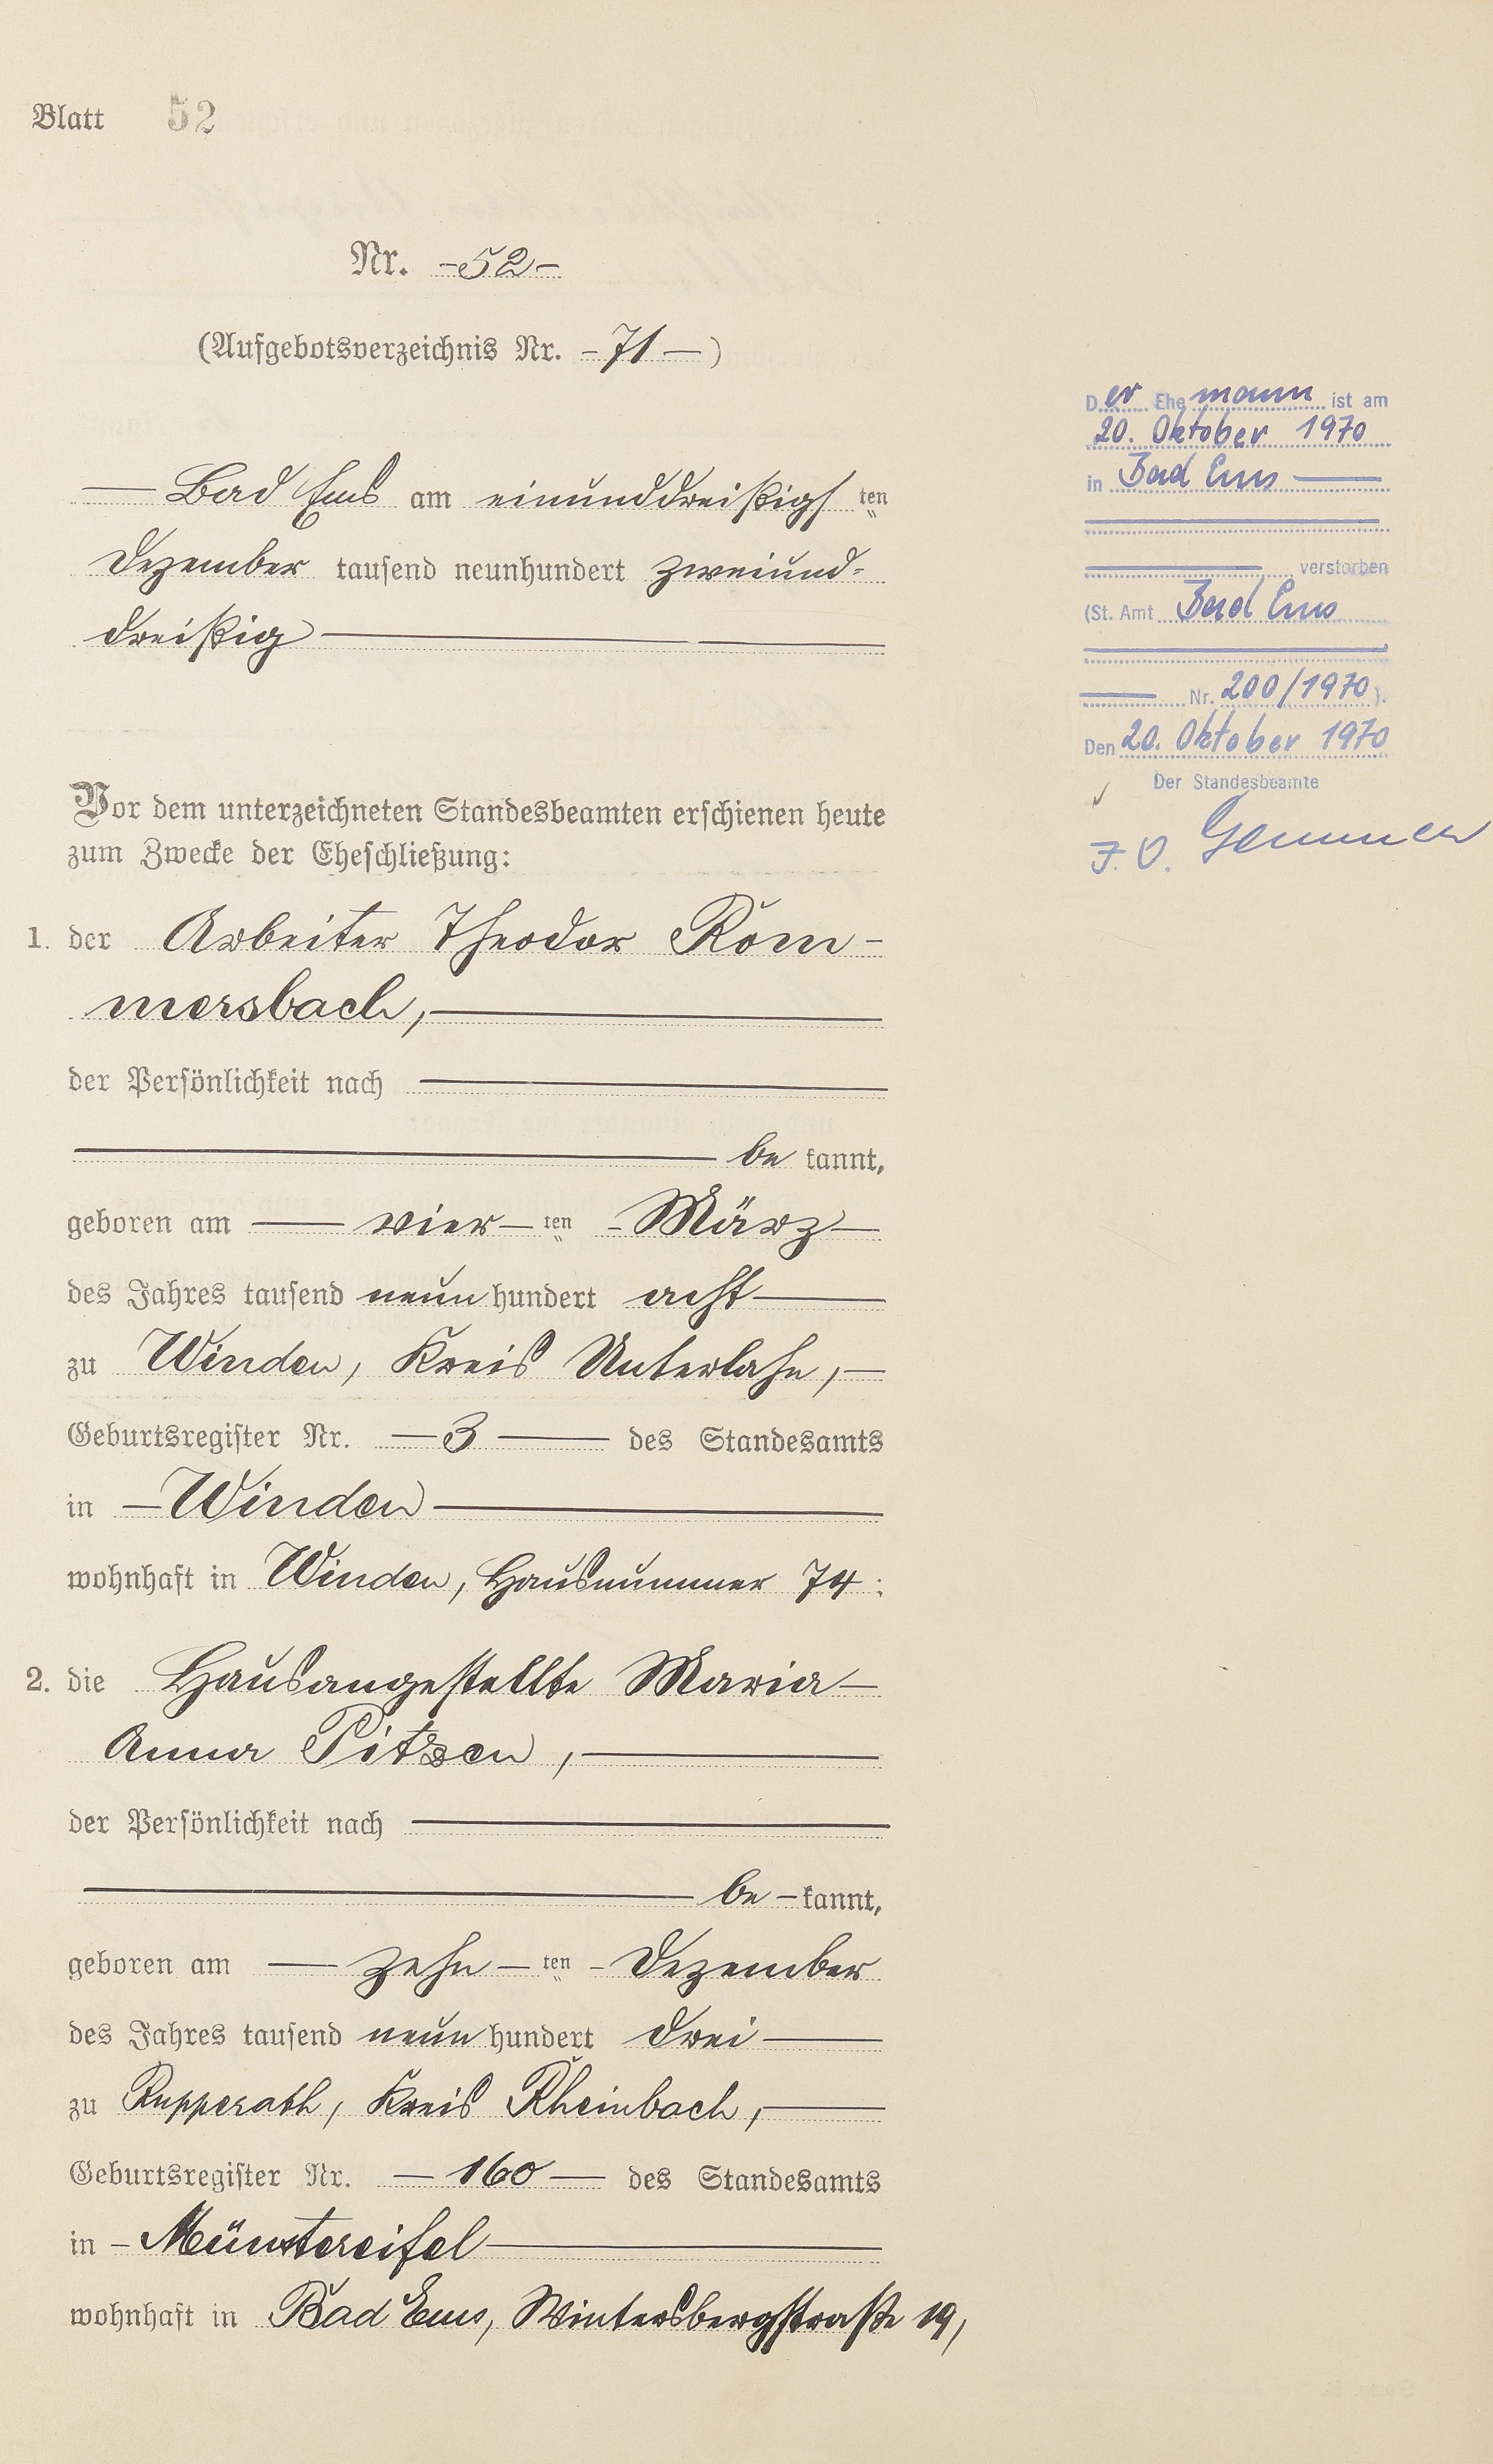 Blatt 52
Nr. -52-
(Aufgebotsverzeichnis Nr. -71-)
Bad Ems am einunddreißigsten
Dezember tausend neunhundert zweiund-
dreißig
Vor dem unterzeichneten Standesbeamten erschienen heute
zum Zwecke der Eheschließung:
1. der Arbeiter Theodor Rom-
mersbach,
der Persönlichkeit nach
be kannt,
geboren am vier ten März
des Jahres tausend neun hundert acht
zu Winden, Kreis Unterlahn,
Geburtsregister Nr. 3 des Standesamts
in Winden
wohnhaft in Winden, Hausnummer 74.
2. die Hausangestellte Maria
Anna Pitzen,
der Persönlichkeit nach
be kannt,
geboren am zehn ten Dezember
des Jahres tausend neun hundert drei
zu Rupperath, Kreis Rheinbach,
Geburtsregister Nr. 160 des Standesamts
in Münstereifel
wohnhaft in Bad Ems, Wintersbergstraße 19,
Der Ehemann ist am
20. Oktober 1970
in Bad Ems
verstorben
(St. Amt Bad Ems
Nr. 200/1970).
Den 20. Oktober 1970
Der Standesbeamte
J.V.